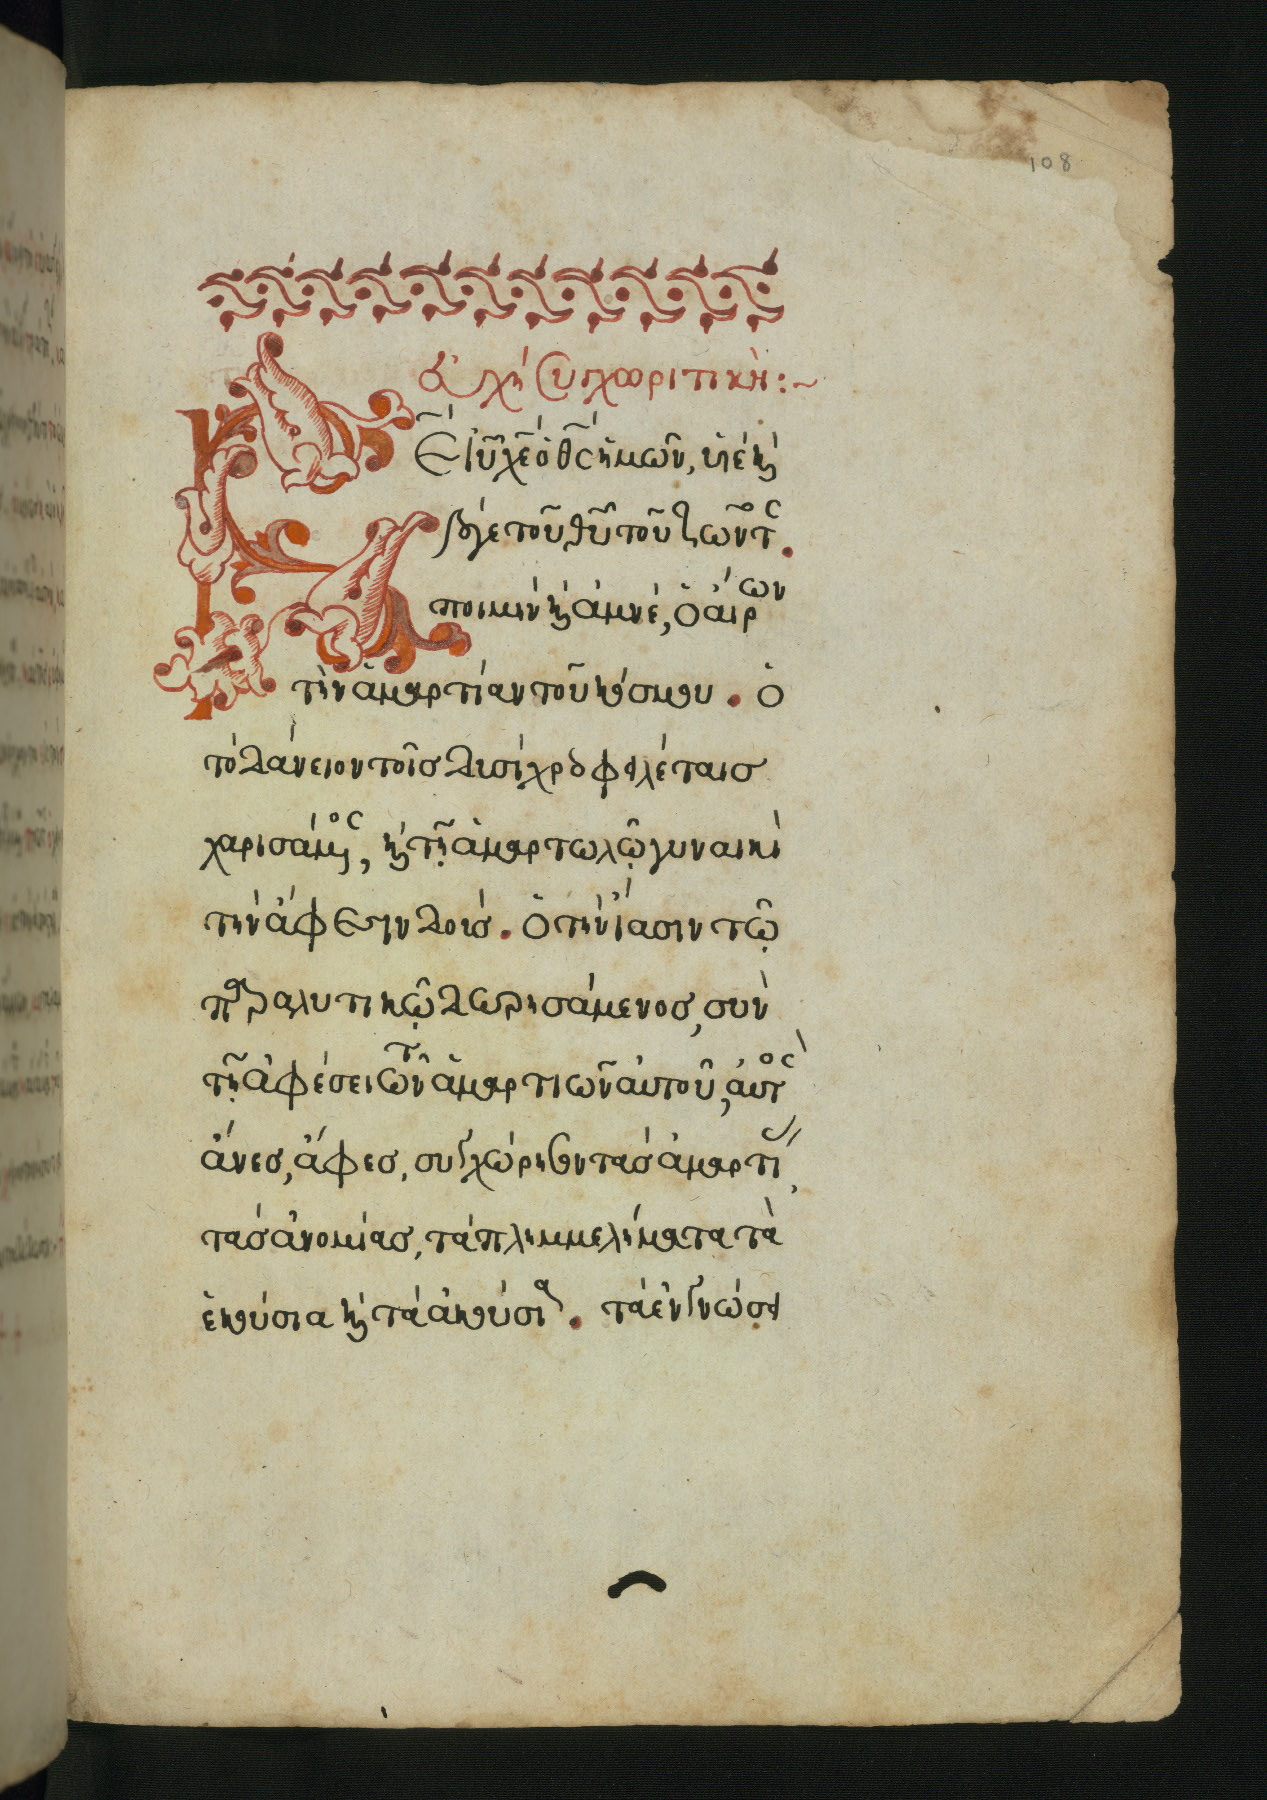 108
Εὐχὴ Συγχωριτικὴ:~
Κε̅ Ἰῦ χε̅ ὁ θς̅ ἡμῶν, ὑϊὲ κὶ
λόγε τοῦ θυ̅ τοῦ ζῶντος.
ποιμὴν κὶ ἀμνέ, ὁ αἴρων
τὴν ἁμαρτίαν τοῦ κόσμου. ὁ
τὸ δάνειον τοῖς δυσὶ χρεοφειλέταις
χαρισάμενος, κὶ τῇ ἁμαρτωλῷ γυναικὶ
τὴν ἄφεσιν δούς. ὁ τὴν ἴασιν τῷ
παραλυτικῷ δωρησάμενος, σὺν
τῇ ἀφέσει τῶν ἁμαρτιῶν αὐτοῦ, αὐτὸς
ἄνες, ἄφες, συγχώρησον τὰς ἁμαρτί,
τὰς ἀνομίας, τὰ πλημμελήματα τὰ
ἑκούσια κὶ τὰ ἀκούσια. τὰ ἐν γνώσει